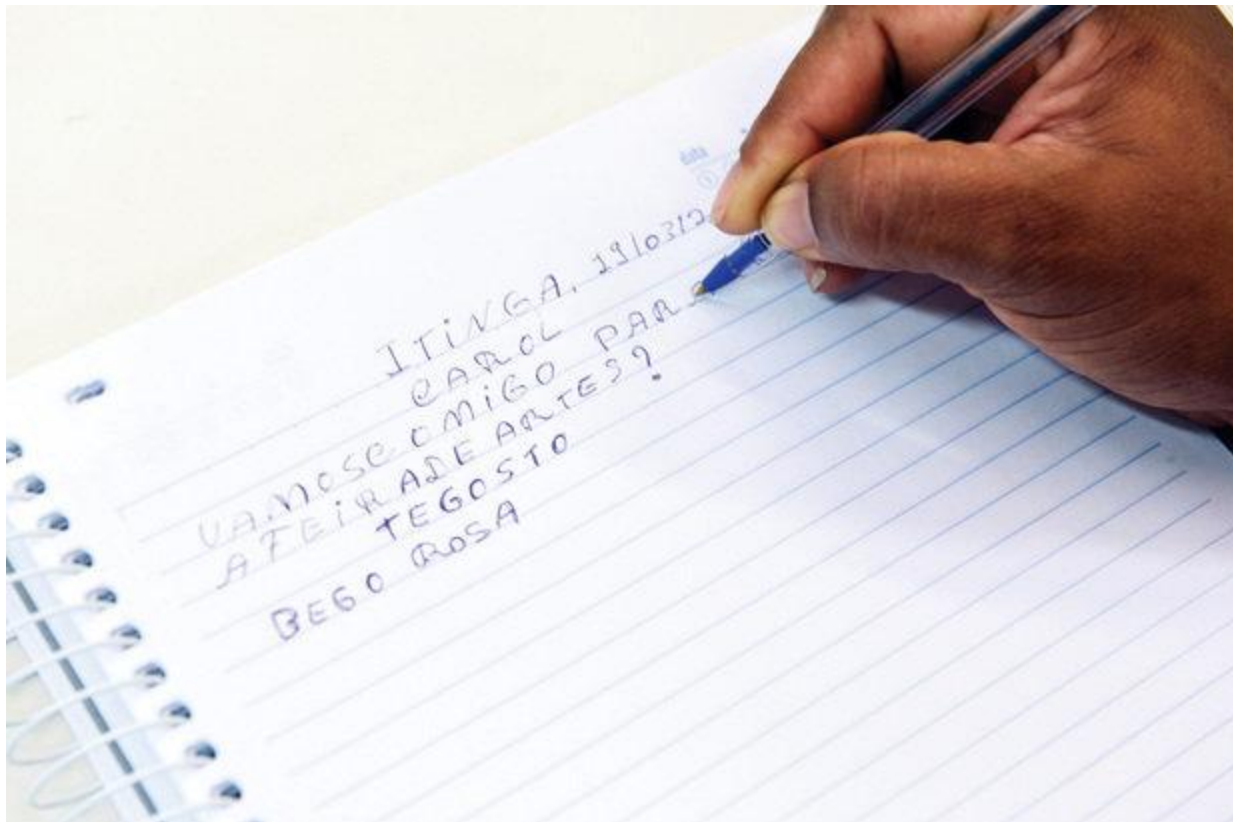 data
ITINGA, 19/03/2
CAROL
VAMOSCOMIGO PAR
AFEIRADE ARTES?
TEGOSTO
BEGO ROSA